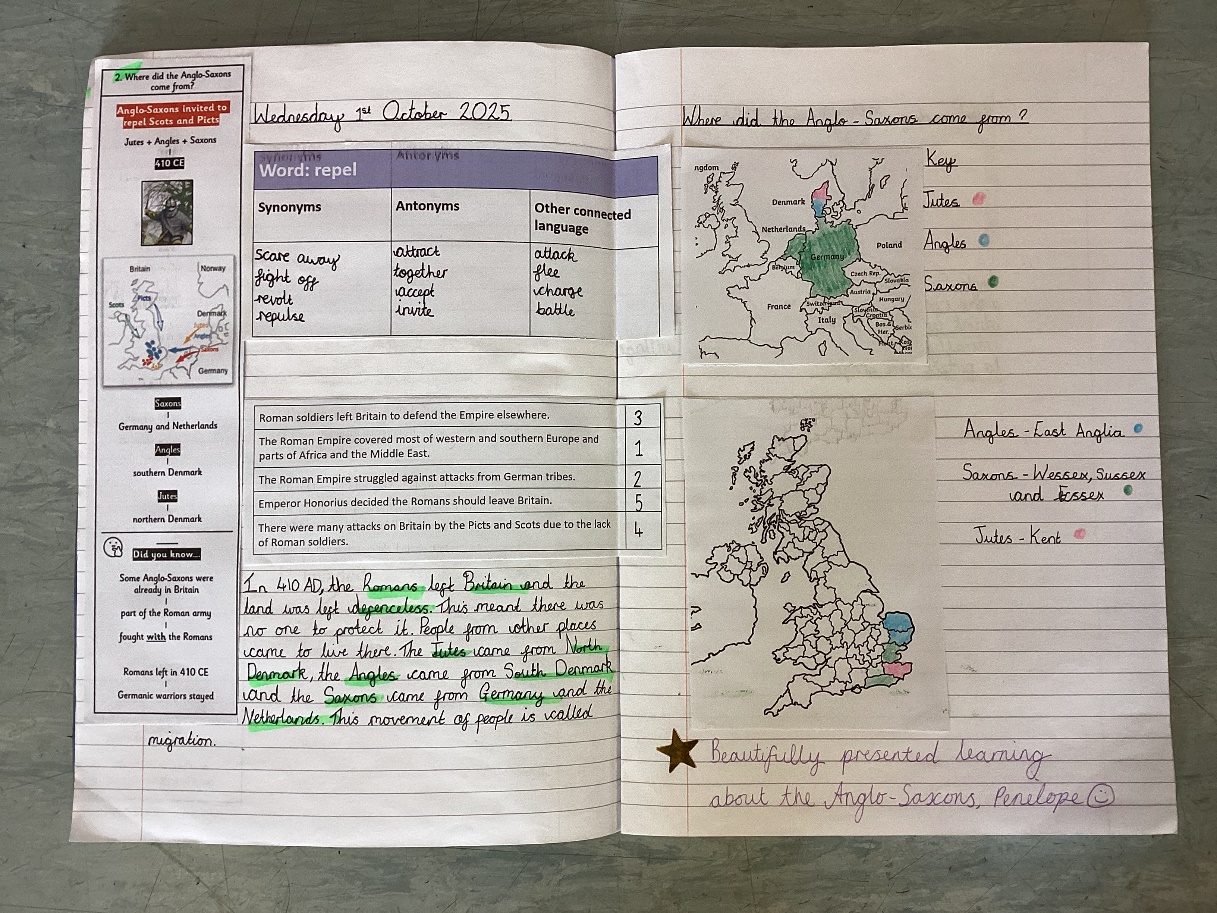 2. Where did the Anglo-Saxons
come from?
Anglo-Saxons invited to
repel Scots and Picts
Jutes + Angles + Saxons
410 CE
Britain
Norway
Scots
Picts
Denmark
Jutes
Angles
Saxons
Germany
Saxons
Germany and Netherlands
Angles
southern Denmark
Jutes
northern Denmark
Did you know...
Some Anglo-Saxons were
already in Britain
part of the Roman army
fought with the Romans
Romans left in 410 CE
Germanic warriors stayed
Wednesday 1st October 2025
Synonyms
Antonyms
Word: repel
Synonyms
Antonyms
Other connected
language
scare away
fight off
revolt
repulse
attract
together
accept
invite
attack
flee
charge
battle
Roman soldiers left Britain to defend the Empire elsewhere.
3
The Roman Empire covered most of western and southern Europe and
parts of Africa and the Middle East.
1
The Roman Empire struggled against attacks from German tribes.
2
Emperor Honorius decided the Romans should leave Britain.
5
There were many attacks on Britain by the Picts and Scots due to the lack
of Roman soldiers.
4
In 410 AD, the Romans left Britain and the
land was left defenceless. This meant there was
no one to protect it. People from other places
came to live there. The Jutes came from North
Denmark, the Angles came from South Denmark
and the Saxons came from Germany and the
Netherlands. This movement of people is called
migration.
Where did the Anglo-Saxons come from?
ngdom
Denmark
Netherlands
Germany
Poland
Belgium
Czech Rep.
Slovakia
Austria
France
Hungary
Italy
Slovenia
Croatia
Bos.&
Her.
Serbi
Key
Jutes
Angles
Saxons
Angles - East Anglia
Saxons - Wessex, Sussex
and Essex
Jutes - Kent
Beautifully presented learning
about the Anglo-Saxons, Penelope